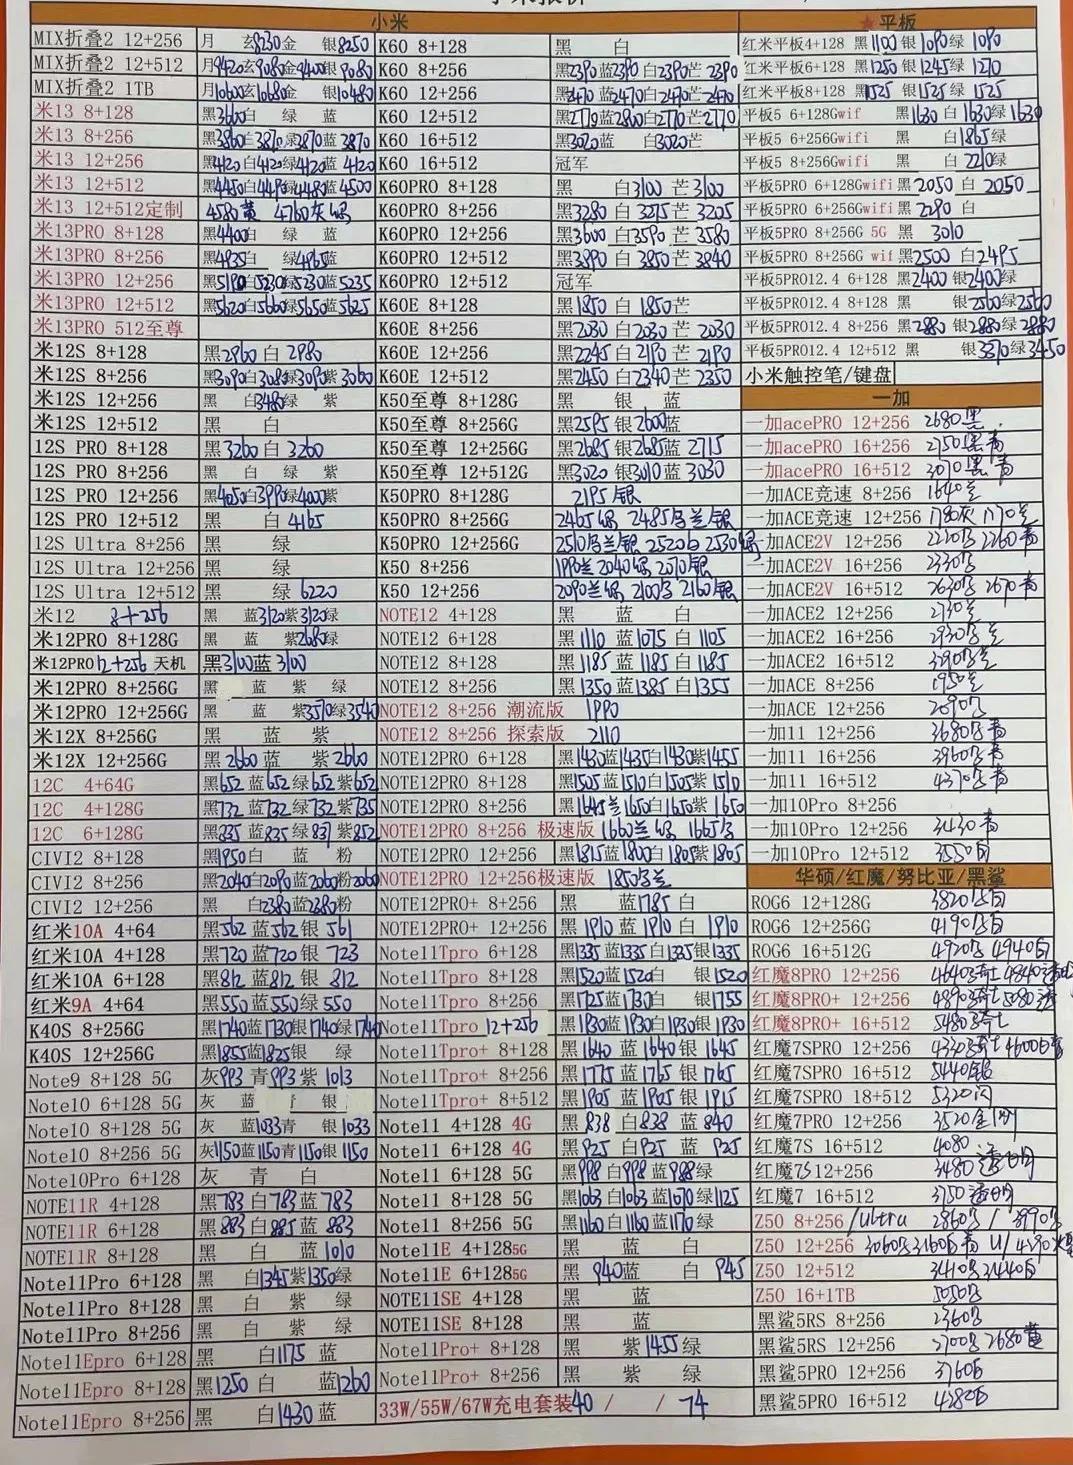 小米
MIX折叠2 12+256 月 玄8230金 银8250
MIX折叠2 12+512 月9420玄9080金9400银9080
MIX折叠2 1TB 月10600玄10680金 银10480
米13 8+128 黑3660白 绿 蓝
米13 8+256 黑3860白3870绿3870蓝3870
米13 12+256 黑4120白4120绿4120蓝4120
米13 12+512 黑4450白4490绿4480蓝4500
米13 12+512定制 4580黄 4760灰绿
米13PRO 8+128 黑4400白 绿 蓝
米13PRO 8+256 黑4935白 绿4965蓝
米13PRO 12+256 黑5190白5230绿5230蓝5235
米13PRO 12+512 黑5620白5660绿5650蓝5625
米13PRO 512至尊
米12S 8+128 黑2960白2980
米12S 8+256 黑3090白3080绿3090紫3060
米12S 12+256 黑 白3480绿 紫
米12S 12+512 黑 白
12S PRO 8+128 黑3260白3260
12S PRO 8+256 黑 白 绿 紫
12S PRO 12+256 黑4050白3990绿4000紫
12S PRO 12+512 黑 白4165
12S Ultra 8+256 黑 绿
12S Ultra 12+256 黑 绿
12S Ultra 12+512 黑 绿6220
米12 8+256 黑 蓝3120紫3120绿
米12PRO 8+128G 黑 蓝 紫2680绿
米12PRO12+256 天机 黑3100蓝3100
米12PRO 8+256G 黑 蓝 紫 绿
米12PRO 12+256G 黑 蓝 紫3570绿3540
米12X 8+256G 黑 蓝 紫
米12X 12+256G 黑2660蓝 紫2660
12C 4+64G 黑652蓝652绿652紫652
12C 4+128G 黑732蓝732绿732紫735
12C 6+128G 黑835蓝835绿837紫852
CIVI2 8+128 黑1950白 蓝 粉
CIVI2 8+256 黑2040白2090蓝2060粉2060
CIVI2 12+256 黑 白2380蓝2380粉
红米10A 4+64 黑562蓝562银561
红米10A 4+128 黑720蓝720银723
红米10A 6+128 黑812蓝812银812
红米9A 4+64 黑550蓝550绿550
K40S 8+256G 黑1740蓝1730银1740绿1740
K40S 12+256G 黑1855蓝1825银 绿
Note9 8+128 5G 灰993青993紫1013
Note10 6+128 5G 灰 蓝 银
Note10 8+128 5G 灰 蓝1033青 银1033
Note10 8+256 5G 灰1150蓝1150青1150银1150
Note10Pro 6+128 灰 青 白
NOTE11R 4+128 黑783白783蓝783
NOTE11R 6+128 黑883白885蓝883
NOTE11R 8+128 黑 白 蓝1010
Note11Pro 6+128 黑 白1345紫1350绿
Note11Pro 8+128 黑 白 紫 绿
Note11Pro 8+256 黑 白 紫 绿
Note11Epro 6+128 黑 白1175蓝
Note11Epro 8+128 黑1250白 蓝1260
Note11Epro 8+256 黑 白1430蓝
K60 8+128 黑 白
K60 8+256 黑2390蓝2390白2390芒2390
K60 12+256 黑2470蓝2470白2470芒2470
K60 12+512 黑2770蓝2800白2770芒2770
K60 16+512 黑3020蓝 白3020芒
K60 16+512 冠军
K60PRO 8+128 黑 白3100芒3100
K60PRO 8+256 黑3280白3275芒3205
K60PRO 12+256 黑3600白3590芒3580
K60PRO 12+512 黑3890白3850芒3840
K60PRO 12+512 冠军
K60E 8+128 黑1850白1850芒
K60E 8+256 黑2030白2030芒2030
K60E 12+256 黑2245白2190芒2190
K60E 12+512 黑2450白2340芒2350
K50至尊 8+128G 黑 银 蓝
K50至尊 8+256G 黑2595银2600蓝
K50至尊 12+256G 黑2685银2685蓝2715
K50至尊 12+512G 黑3020银3010蓝3030
K50PRO 8+128G 2195银
K50PRO 8+256G 2465绿 2485乌兰/银
K50PRO 12+256G 2510乌兰/银 2520白2530绿
K50 8+256 1990兰2040绿2070银
K50 12+256 2090兰绿2100乌2160银
NOTE12 4+128 黑 蓝 白
NOTE12 6+128 黑1110蓝1075白1105
NOTE12 8+128 黑1185蓝1185白1185
NOTE12 8+256 黑1350蓝1385白1355
NOTE12 8+256 潮流版 1990
NOTE12 8+256 探索版 2110
NOTE12PRO 6+128 黑1430蓝1435白1430紫1455
NOTE12PRO 8+128 黑1505蓝1510白1505紫1510
NOTE12PRO 8+256 黑1645兰1650白1650紫1650
NOTE12PRO 8+256 极速版 1660兰绿 1665乌
NOTE12PRO 12+256 黑1815蓝1800白1805紫1805
NOTE12PRO 12+256极速版 1850乌兰
NOTE12PRO+ 8+256 黑 蓝1785白
NOTE12PRO+ 12+256 黑1910蓝1910白1910
Note11Tpro 6+128 黑1335蓝1335白1335银1335
Note11Tpro 8+128 黑1520蓝1520白 银1520
Note11Tpro 8+256 黑1725蓝1730白 银1755
Note11Tpro 12+256 黑1930蓝1930白1930银1930
Note11Tpro+ 8+128 黑1640蓝1640银1645
Note11Tpro+ 8+256 黑1775蓝1765银1765
Note11Tpro+ 8+512 黑1905蓝1905银1915
Note11 4+128 4G 黑838白838蓝840
Note11 6+128 4G 黑925白925蓝925
Note11 6+128 5G 黑998白998蓝988绿
Note11 8+128 5G 黑1063白1063蓝1070绿1125
Note11 8+256 5G 黑1160白1160蓝1170绿
Note11E 4+128 5G 黑 蓝 白
Note11E 6+128 5G 黑940蓝 白945
NOTE11SE 4+128 黑 蓝
NOTE11SE 8+128 黑 蓝
Note11Pro+ 8+128 黑 紫1455绿
Note11Pro+ 8+256 黑 紫 绿
33W/55W/67W充电套装40 / / 74
★平板
红米平板4+128 黑1100银1090绿1090
红米平板6+128 黑1250银1245绿1270
红米平板8+128 黑1525银1525绿1525
平板5 6+128Gwif 黑1630白1630绿1630
平板5 6+256Gwifi 黑 白1865绿
平板5 8+256Gwifi 黑 白2210绿
平板5PRO 6+128Gwifi 黑2050白2050
平板5PRO 6+256Gwifi 黑2290白
平板5PRO 8+256G 5G 黑 3010
平板5PRO 8+256G wif 黑2500白2495
平板5PRO12.4 6+128 黑2400银2400绿
平板5PRO12.4 8+128 黑 银2560绿2560
平板5PRO12.4 8+256 黑2880银2880绿2880
平板5PRO12.4 12+512 黑 银3370绿3450
小米触控笔/键盘
一加
一加acePRO 12+256 2680黑
一加acePRO 16+256 2750黑青
一加acePRO 16+512 3070黑青
一加ACE竞速 8+256 1640兰
一加ACE竞速 12+256 1780灰 1770兰
一加ACE2V 12+256 2220乌 2260青
一加ACE2V 16+256 2330乌
一加ACE2V 16+512 2630乌 2670青
一加ACE2 12+256 2730兰
一加ACE2 16+256 2930乌兰
一加ACE2 16+512 3390乌兰
一加ACE 8+256 1950兰
一加ACE 12+256 2090乌
一加11 12+256 3680乌青
一加11 16+256 3960乌青
一加11 16+512 4370乌青
一加10Pro 8+256
一加10Pro 12+256 3430青
一加10Pro 12+512 3550白
华硕/红魔/努比亚/黑鲨
ROG6 12+128G 3820黑白
ROG6 12+256G 4190乌白
ROG6 16+512G 4920乌 4940白
红魔8PRO 12+256 4640骑士 4840透
红魔8PRO+ 12+256 4890骑士5080透
红魔8PRO+ 16+512 5480骑士
红魔7SPRO 12+256 4330骑士4600白
红魔7SPRO 16+512 5440银
红魔7SPRO 18+512 5320闪
红魔7PRO 12+256 3520金刚
红魔7S 16+512 4080
红魔7S12+256 3480透明
红魔7 16+512 3750透明
Z50 8+256/Ultra 2860乌/3990乌
Z50 12+256 3060乌3160白青 U/4390
Z50 12+512 3410乌3440白
Z50 16+1TB 5050乌
黑鲨5RS 8+256 2360乌
黑鲨5RS 12+256 2700乌2680黄
黑鲨5PRO 12+256 3760白
黑鲨5PRO 16+512 4282白